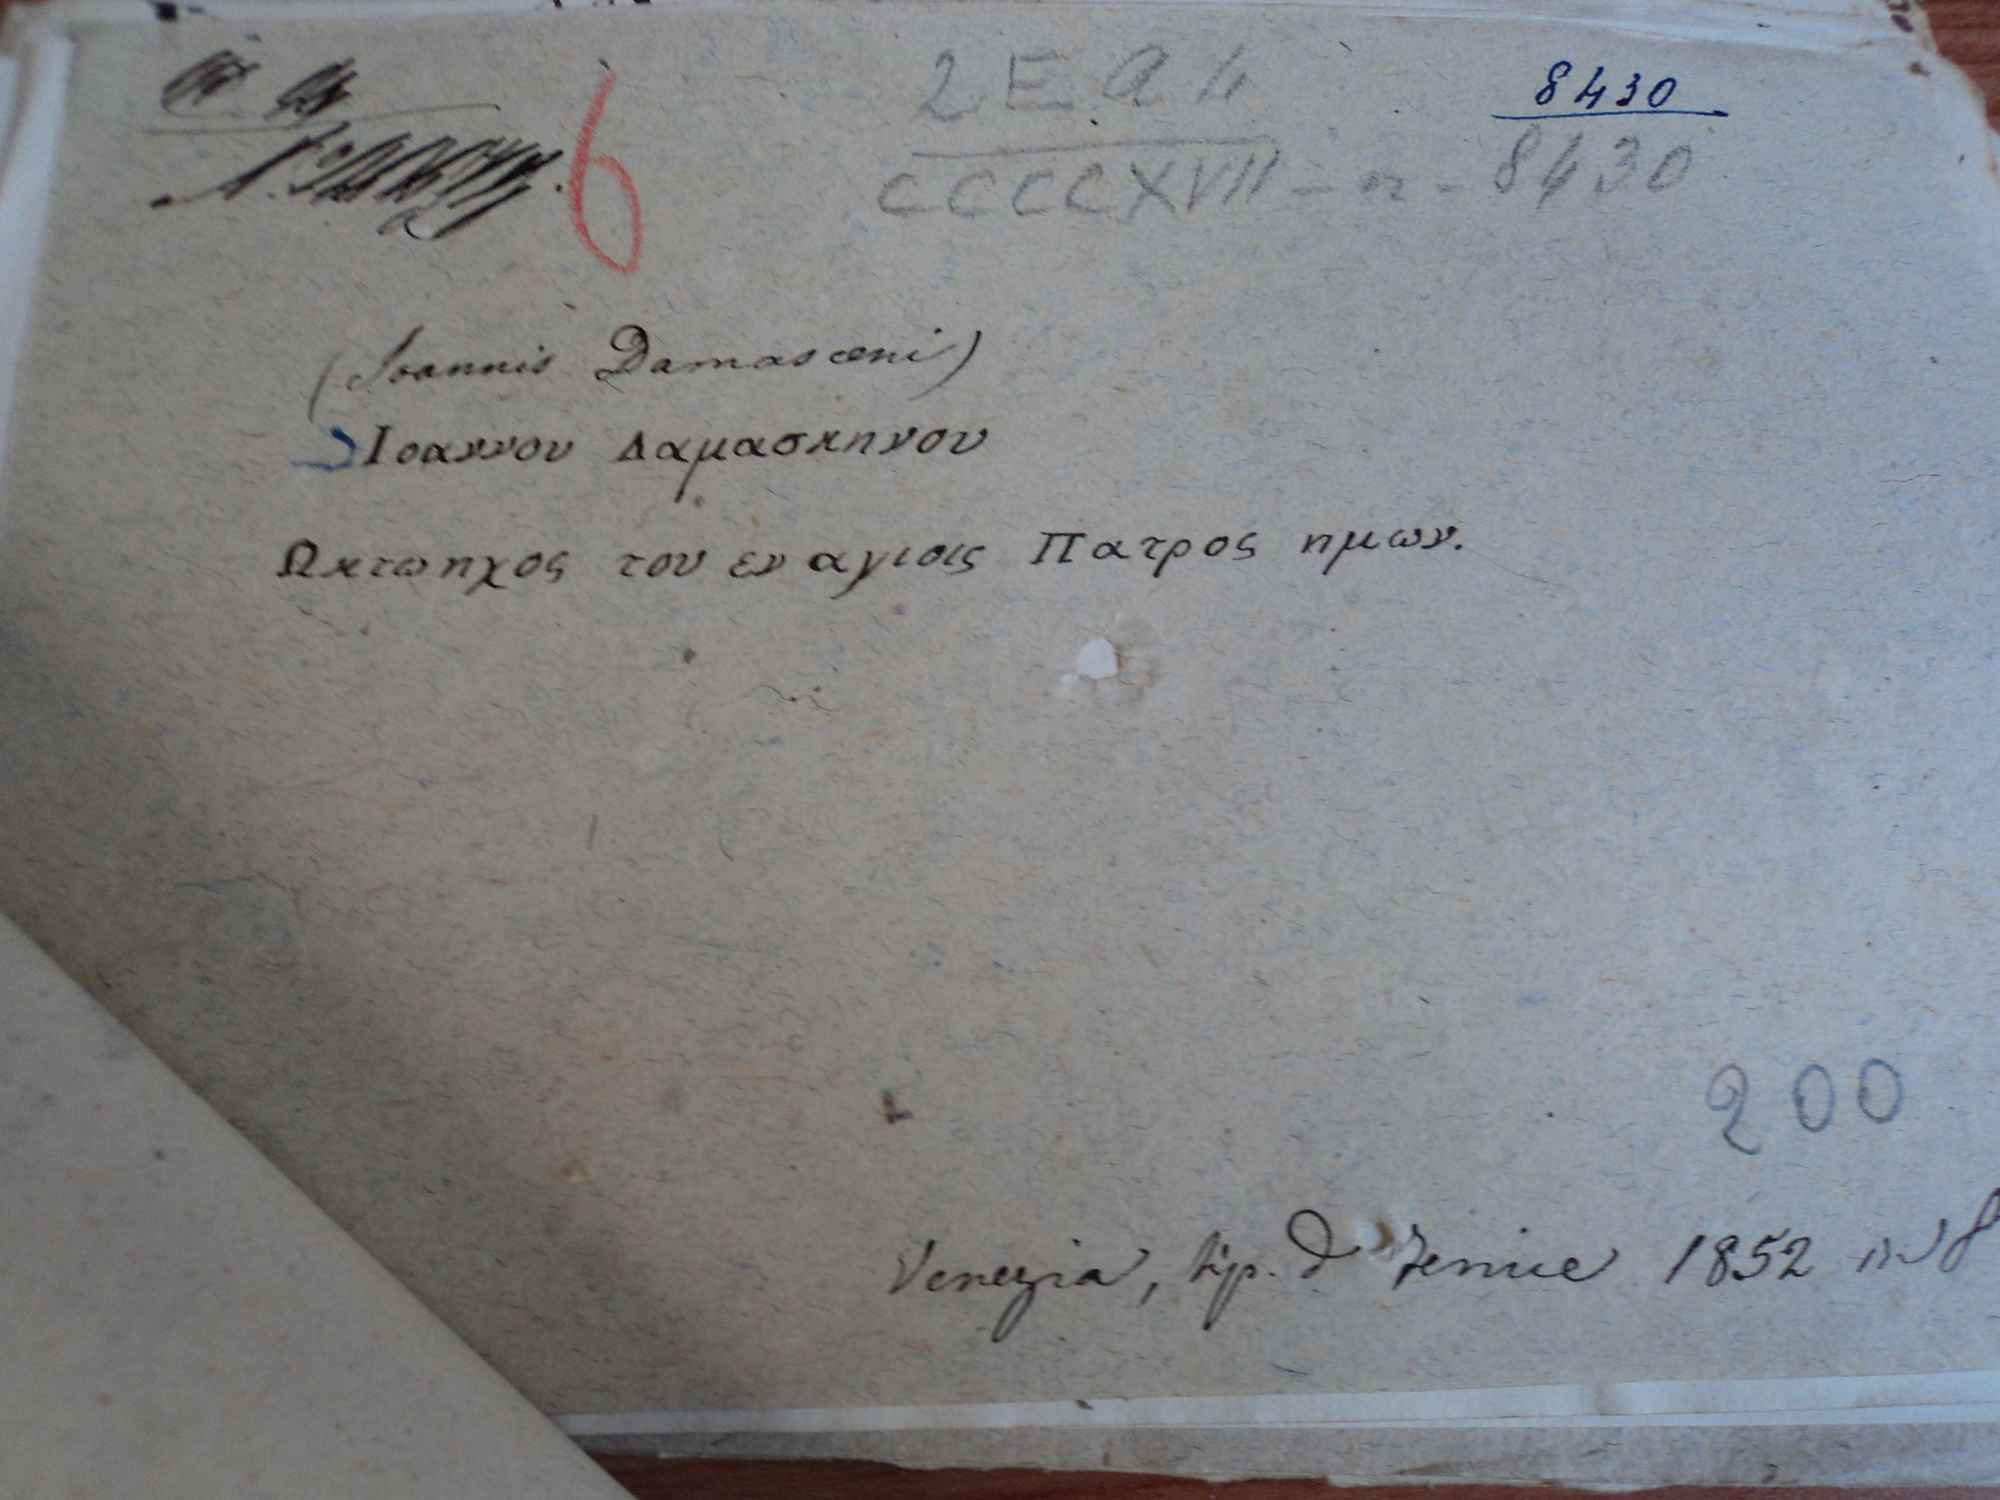 6
2 E a 4
8430
CCCCXVII - n - 8430
(Joannis Damasceni)
Ιοαννου Δαμασκηνου
Ωκτωηχος του εν αγιοις Πατρος ημων.
200
Venezia, tip. d Fenice 1852 in 8